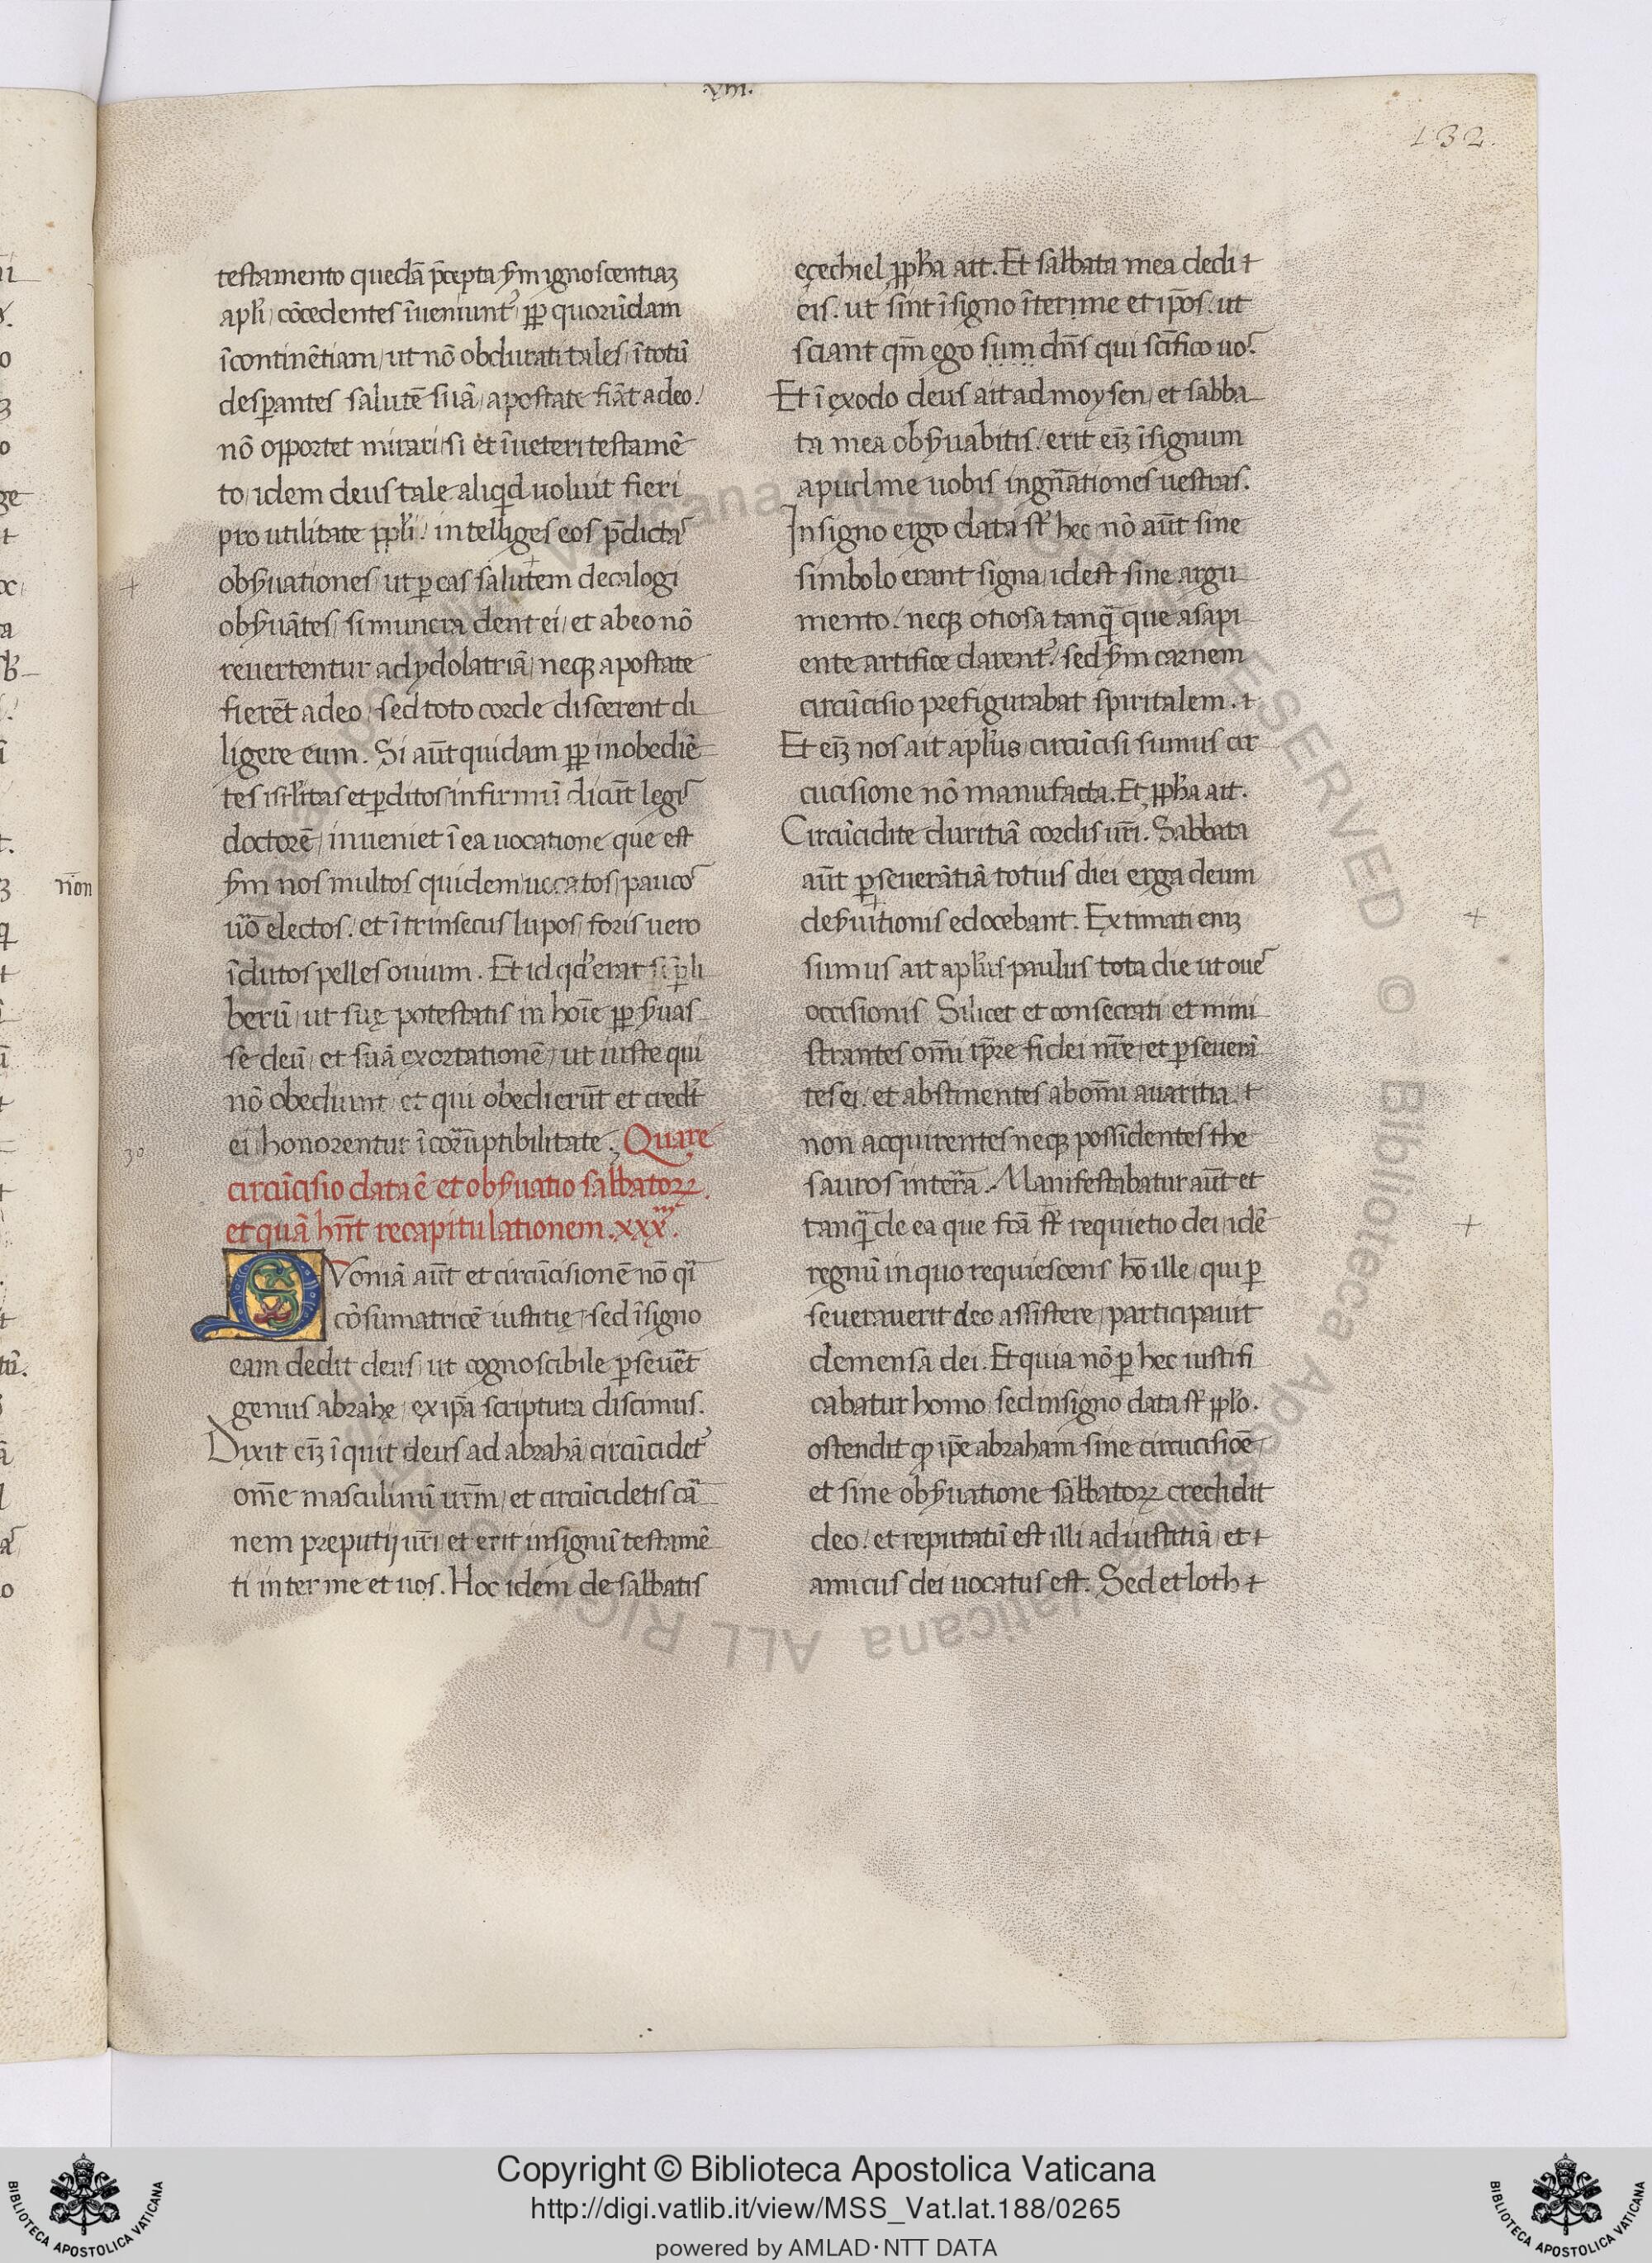 .xviii.
132.
testamento quedā p̄cepta s̄m ignoscentiaȝ
apl̄i, cōcedentes īueniunt᷑, pp̄ quorūdam
īcontinētiam, ut nō obdurati tales, ī totū
desꝑantes salutē suā, apostate fiāt a deo.
nō opportet mirari, si et ī ueteri testamē
to, idem deus tale aliqͥd uoluit fieri
pro utilitate ppl̄i. intelliges eos p̄dictas
obs̄uationes, ut ꝑ eas salutem decalogi
obs̄uātes, si munera dent ei, et ab eo nō
reuertentur ad ydolatriā, neqȝ apostate
fierēt a deo, sed toto corde discerent di
ligere eum. Si aūt quidam pp̄ inobediē
tes isrl̄itas et ꝑditos infirmū dicūt legis
doctorē, inueniet ī ea uocatione que est
s̄m nos multos quidem uocatos, paucos
ūo electos. et ītrinsecus lupos, foris uero
īdutos pelles ouium. Et id qd̓ erat sp̄ li
berū, ut suę potestatis in hoīe pp̄ s̄uas
se deū, et suā exortationē, ut iuste qui
nō obediunt, et qui obedierūt et credt̄
ei honorentur ī corruptibilitate. Quare
circūcisio data ē et obs̄uatio sabbatoꝝ.
et quā hn̄t recapitulationem. xxx.
QVoniā aūt et circūcisionē nō qͣi
cōsumatricē iustitię, sed ī signo
eam dedit deus, ut cognoscibile ꝑseueret
genus abrahę, ex ip̄a scriptura discimus.
Dixit eīȝ īquit deus ad abrahā, circūcidet᷑
om̄e masculinū ur̄m, et circūcidetis car
nem preputij ur̄i, et erit in signū testamē
ti inter me et uos. Hoc idem de sabbatis
30
eçechiel ppħa ait. Et sabbata mea dedi
eis. ut sint ī signo īter me et ip̄os. ut
sciant qm̄ ego sum dn̄s qui sc̄ifico uos.
Et ī exodo deus ait ad moysen, et sabba
ta mea obs̄uabitis. erit eīȝ ī signum
apud me uobis in gn̄ationes uestras.
In signo ergo data st̄ hec, nō aūt sine
simbolo erant signa, id est sine argu
mento. neqȝ otiosa tanqͣ que a sapi
ente artifice darent᷑. sed s̄m carnem
circūcisio prefigurabat spiritalem.
Et eīȝ nos ait apl̄us, circūcisi sumus cir
cucisione nō manufacta. Et ppħa ait.
Circūcidite duritiā cordis ur̄i. Sabbata
aūt ꝑseuerātiā totius diei erga deum
des̄uitionis edocebant. Extimati enīȝ
sumus ait apl̄us paulus tota die ut oues
occisionis Silicet et consecrati et mini
strantes om̄i tp̄re fidei nr̄e, et ꝑseuerā
tes ei. et abstinentes ab om̄i auaritia.
non acquirentes neqȝ possidentes the
sauros in terra. Manifestabatur aūt et
tanqͣ de ea que fc̄a st̄ requietio dei, id ē
regnū in quo requiescens hō ille, qui ꝑ
seuerauerit deo assistere, participauit
de mensa dei. Et quia nō ꝑ hec iustifi
cabatur homo, sed in signo data st̄ ppl̄o.
ostendit ꝙ ip̄e abraham sine circucisiōe
et sine obs̄uatione sabbatoꝝ credidit
deo. et reputatū est illi ad iustitiā, et
amicus dei uocatus est. Sed et loth
Copyright © Biblioteca Apostolica Vaticana
http://digi.vatlib.it/view/MSS_Vat.lat.188/0265
powered by AMLAD·NTT DATA